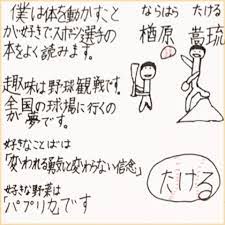 僕は体を動かすこと
が好きでスポーツ選手の
本をよく読みます。
趣味は野球観戦です。
全国の球場に行くの
が夢です。
好きなことばは
「変われる勇気と変わらない信念」
好きな野菜は
「パプリカ」です
ならはら たける
楢原 嵩琉
たける